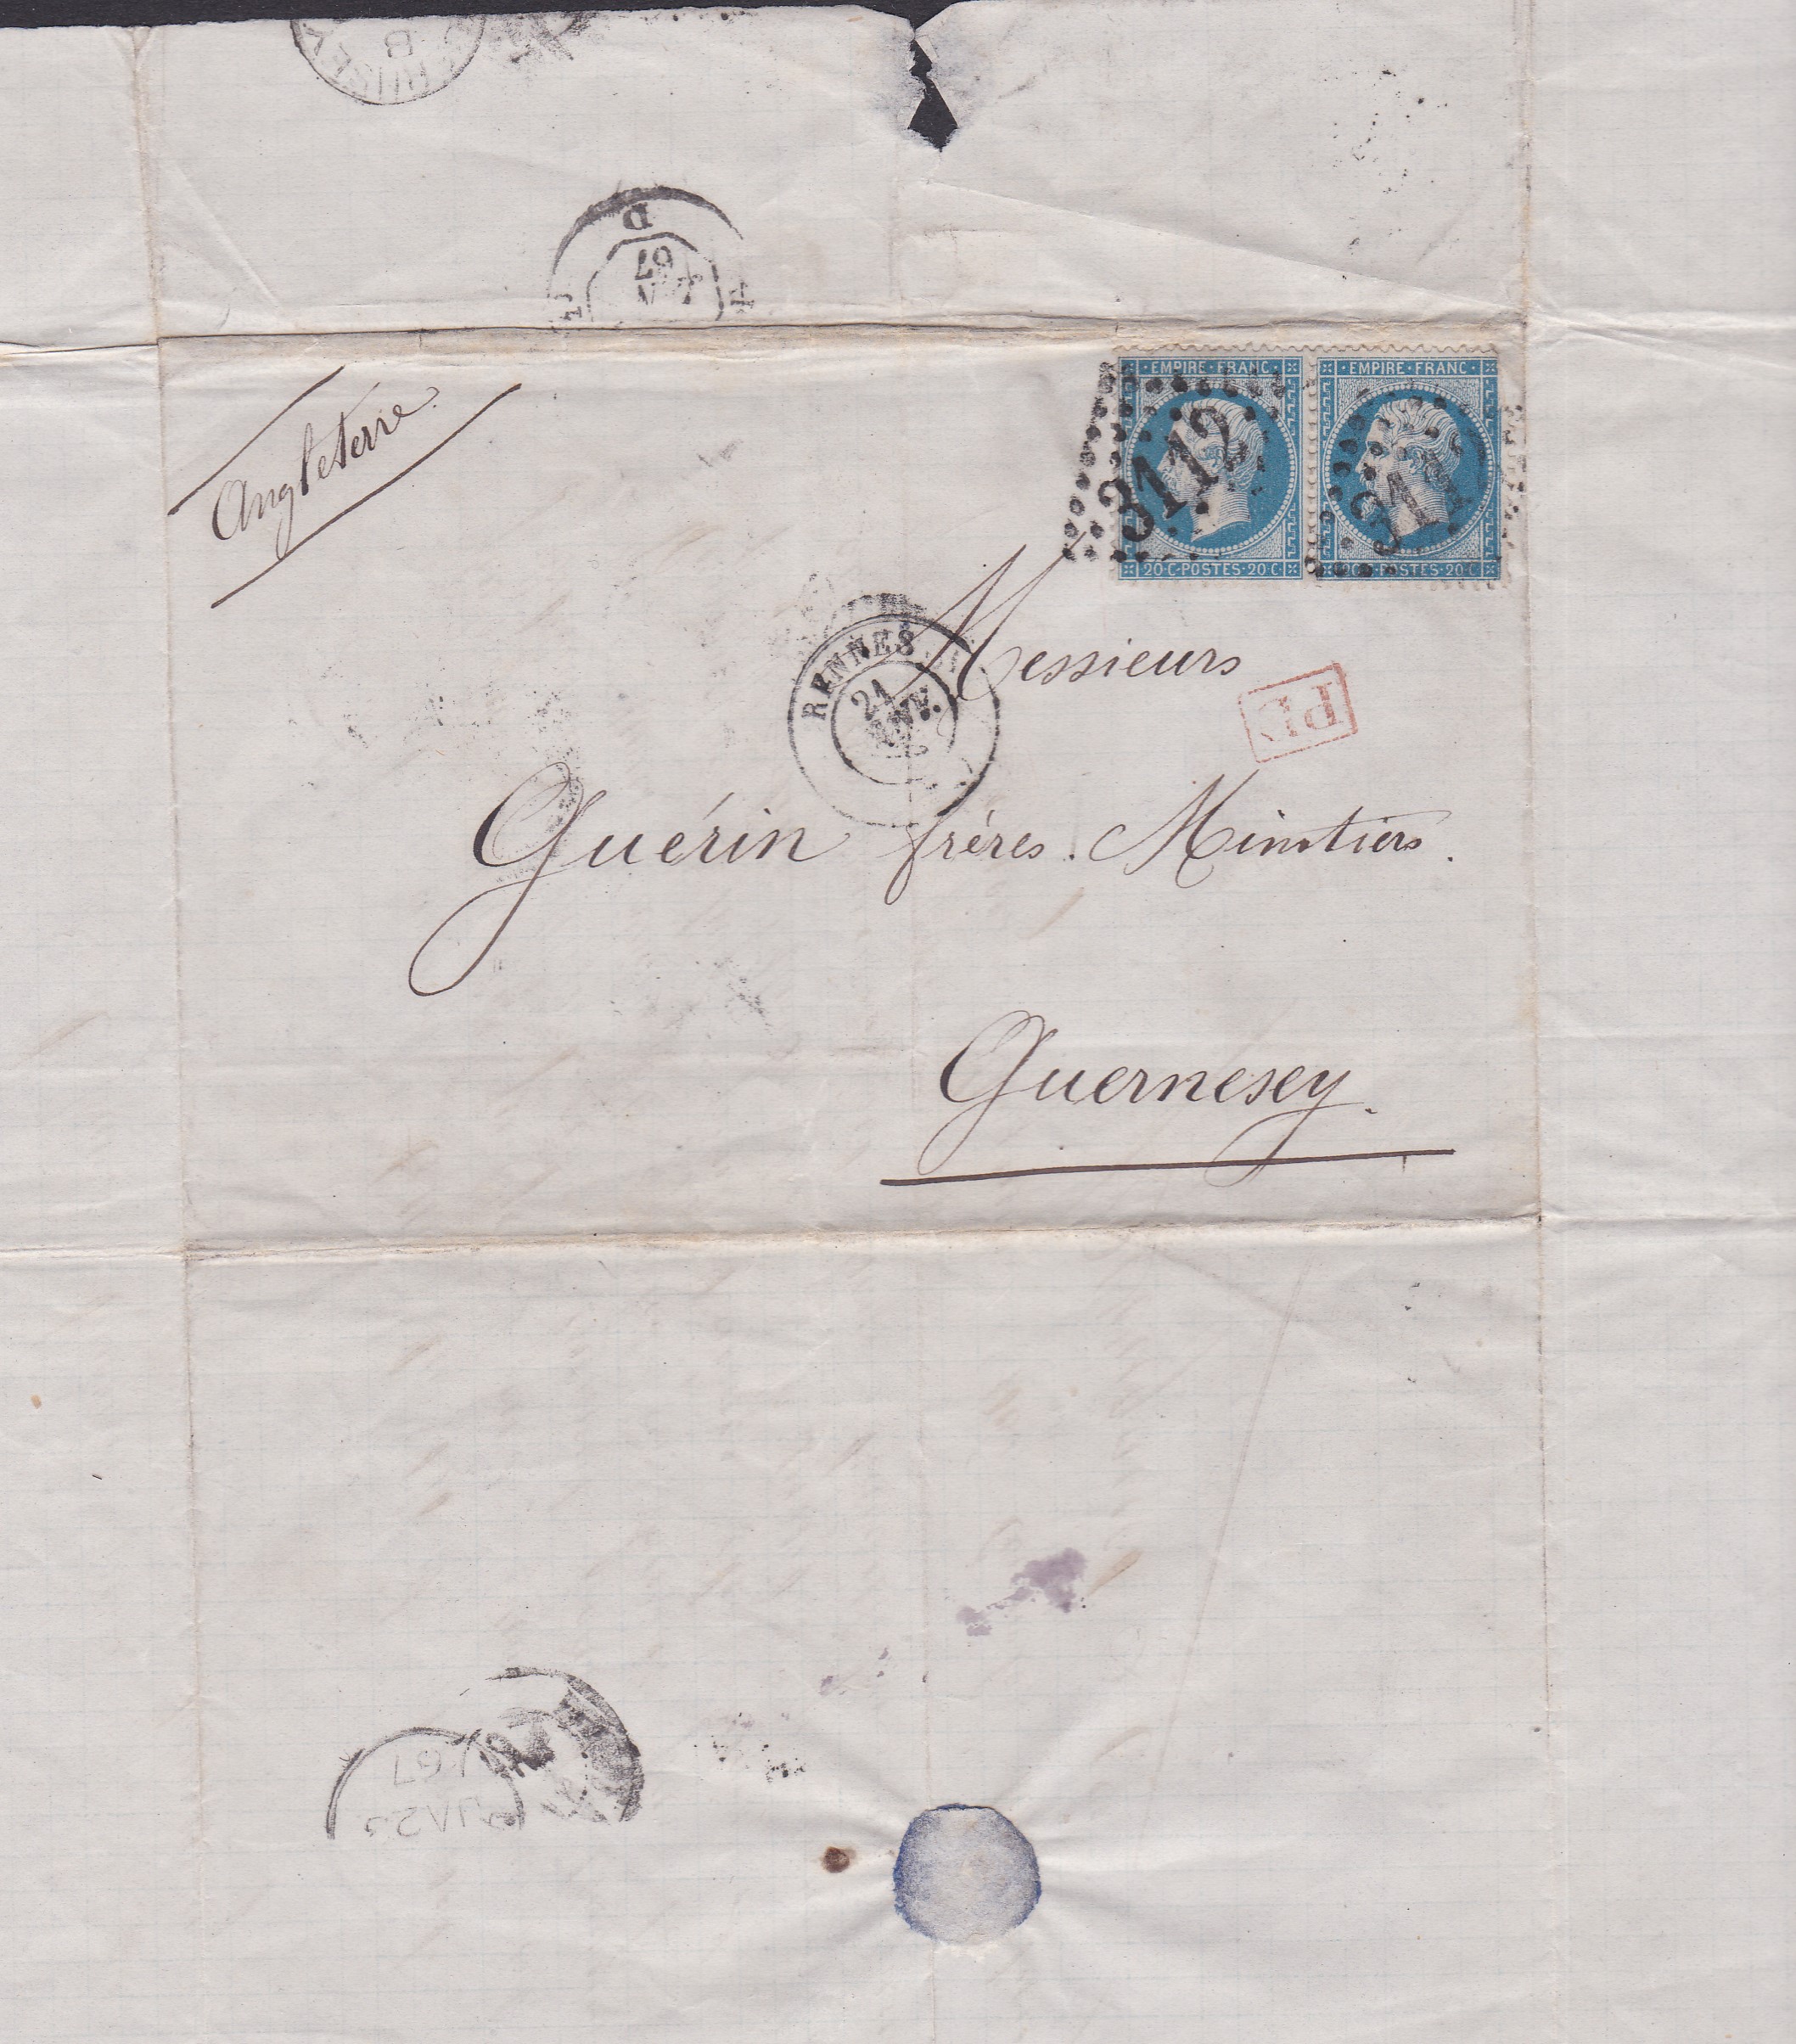 B
D
67
Angleterre.
EMPIRE·FRANC
EMPIRE·FRANC
3112
20·C·POSTES·20·C
POSTES·20·C
RENNES
21
JANV.
PD
Messieurs
Guérin frères. Minotiers.
Guernesey.
67
JA 23